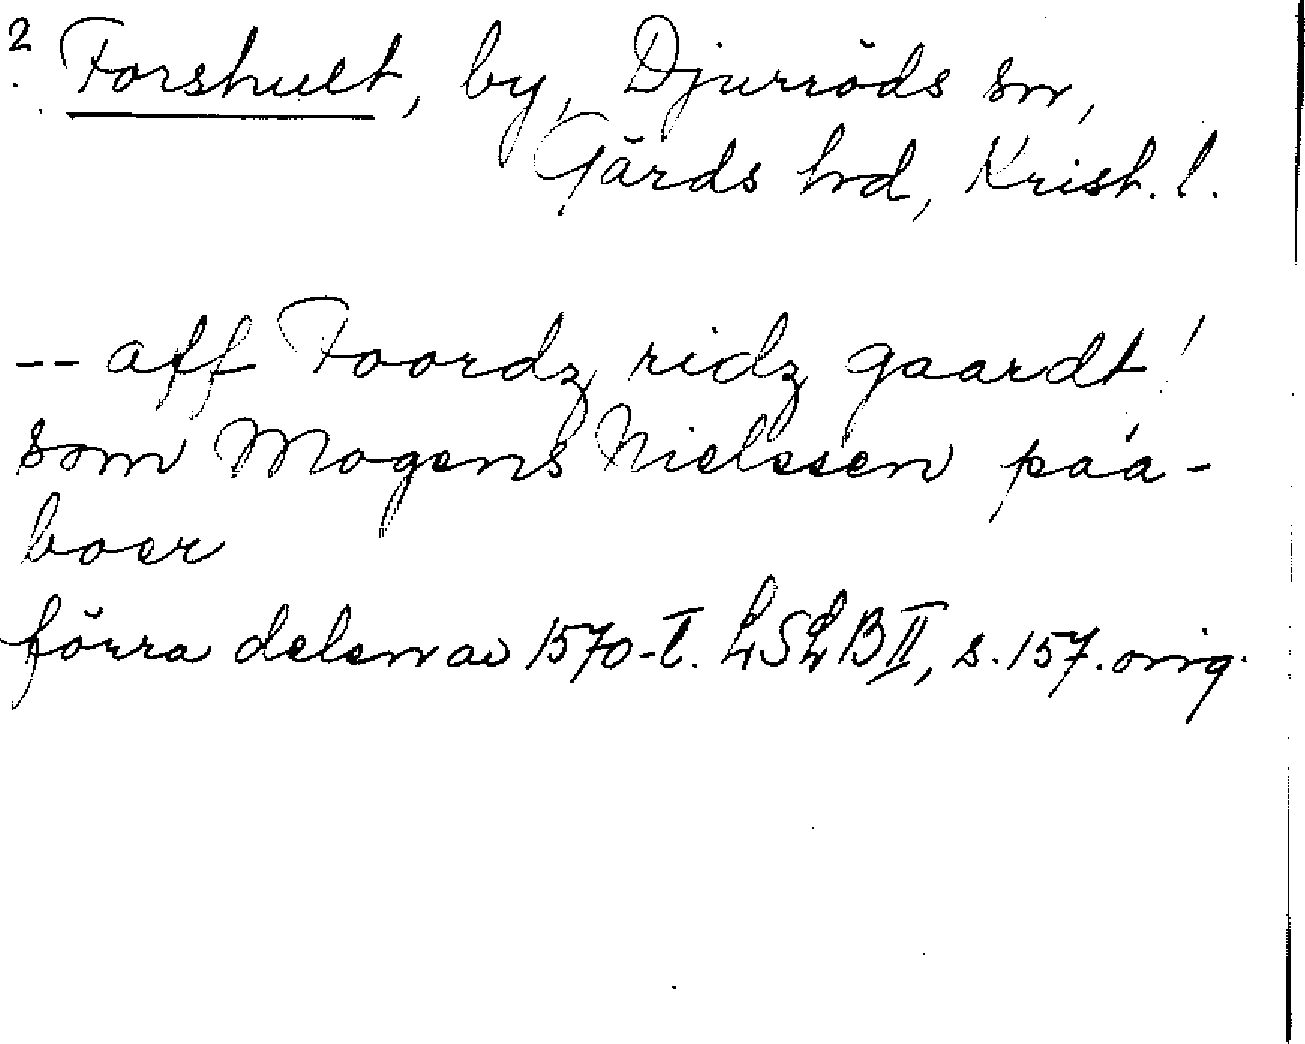 ? Forshult, by, Djurröds sn,
Gärds hrd, Krist. l.
-- aff Foordz ridz gaardt!
som Mogens Nielssen paa-
boer
förra delen av 1570-t. LSLB II, s. 157. orig.